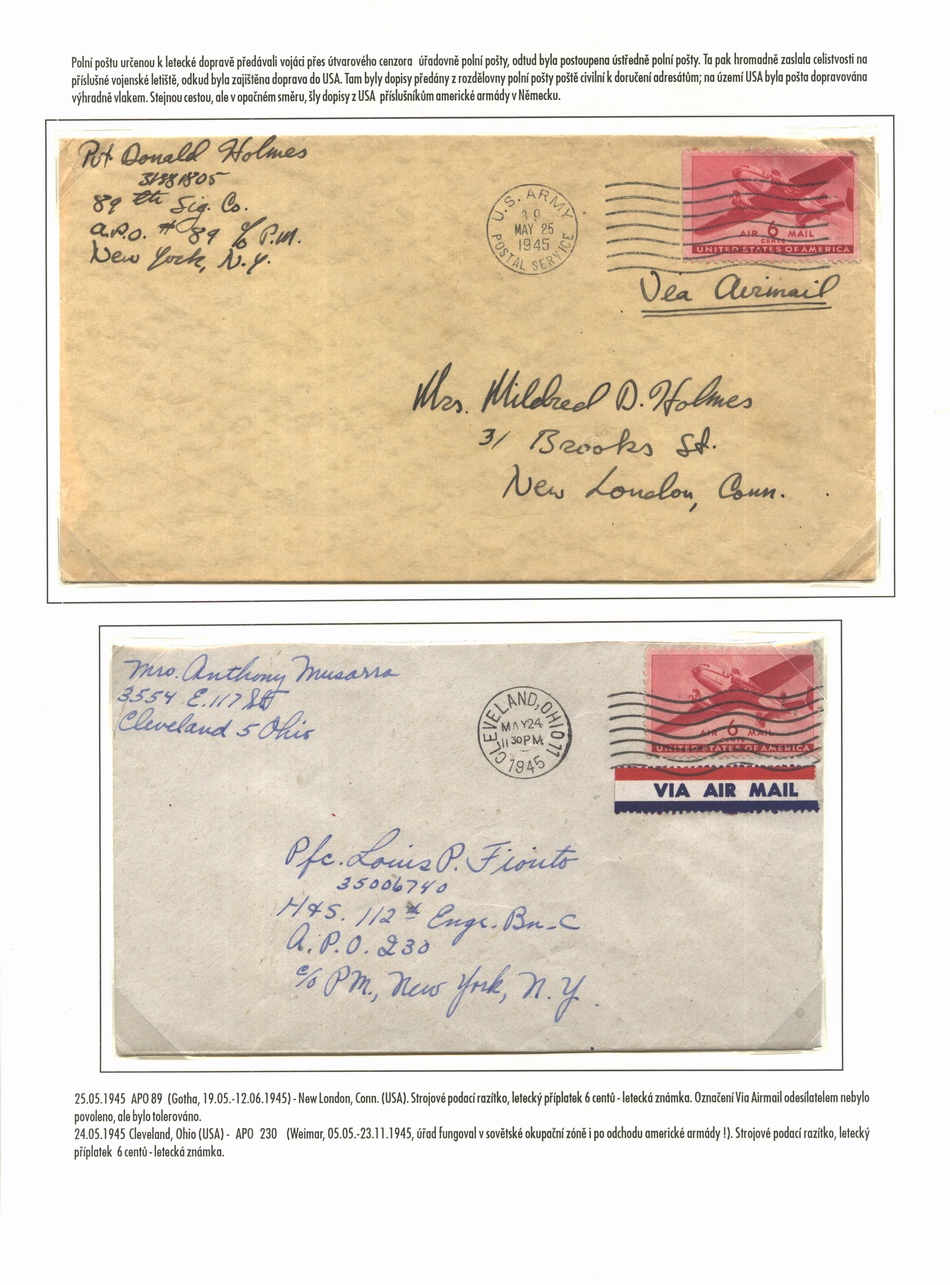 Polní poštu určenou k letecké dopravě předávali vojáci přes útvarového cenzora úřadovně polní pošty, odtud byla postoupena ústředně polní pošty. Ta pak hromadně zaslala celistvosti na
příslušné vojenské letiště, odkud byla zajištěna doprava do USA. Tam byly dopisy předány z rozdělovny polní pošty poště civilní k doručení adresátům; na území USA byla pošta dopravována
výhradně vlakem. Stejnou cestou, ale v opačném směru, šly dopisy z USA příslušníkům americké armády v Německu.
Pvt Donald Holmes
31381805
89 th Sig. Co.
A.P.O. # 89 c/o P.M.
New York, N.Y.
U.S. ARMY
39
MAY 25
1945
POSTAL SERVICE
AIR 6 MAIL
CENTS
UNITED STATES OF AMERICA
Via Airmail
Mrs. Mildred D. Holmes
31 Brooks St.
New London, Conn.
Mrs. Anthony Musarra
3554 E. 117 St
Cleveland 5 Ohio
CLEVELAND, OHIO 11
MAY 24
11 30 PM
1945
AIR 6 MAIL
CENTS
UNITED STATES OF AMERICA
VIA AIR MAIL
Pfc. Louis P. Fiorito
35006740
H&S. 112th Engr. Bn-C
A.P.O. 230
c/o PM., New York, N.Y.
25.05.1945 APO 89 (Gotha, 19.05.-12.06.1945) - New London, Conn. (USA). Strojové podací razítko, letecký příplatek 6 centů - letecká známka. Označení Via Airmail odesílatelem nebylo
povoleno, ale bylo tolerováno.
24.05.1945 Cleveland, Ohio (USA) - APO 230 (Weimar, 05.05.-23.11.1945, úřad fungoval v sovětské okupační zóně i po odchodu americké armády !). Strojové podací razítko, letecký
příplatek 6 centů - letecká známka.